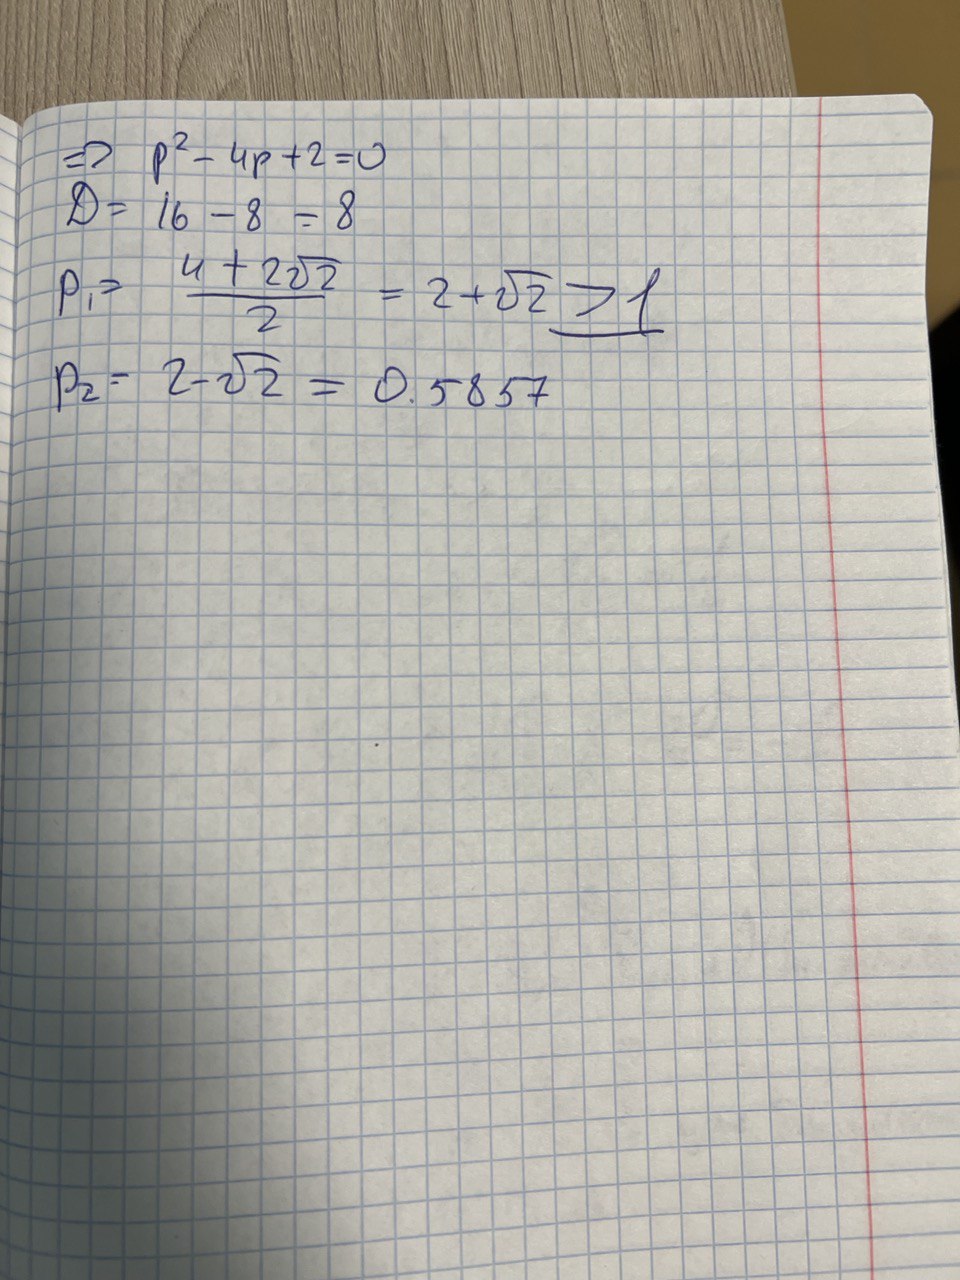 => p² - 4p + 2 = 0
D = 16 - 8 = 8
p₁ = (4 + 2√2)/2 = 2 + √2 > 1
p₂ = 2 - √2 = 0.5857